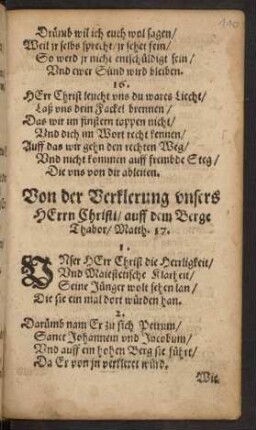 110
Drümb wil ich euch wol sagen/
Weil jr selbs sprecht/ jr sehet fein/
So werd jr nicht entschüldigt sein/
Vnd ewer Sünd wird bleiben.
16.
HErr Christ leucht vns du wares Liecht/
Laß vns dein Fackel brennen/
Das wir im finstern tappen nicht/
Vnd dich im Wort recht kennen/
Auff das wir gehn den rechten Weg/
Vnd nicht kommen auff frembde Steg/
Die vns von dir ableiten.
Von der Verklerung vnsers
HErrn Christi/ auff dem Berge
Thabor/ Matth. 17.
1.
VNser HErr Christ die Herrligkeit/
Vnd Maiestetische Klarheit
Seine Jünger wolt sehen lan/
Die sie ein mal dort würden han.
2.
Darümb nam Er zu sich Petrum/
Sanct Johannem vnd Jacobum/
Vnd auff ein hohen Berg sie führt/
Da Er von jn verkleret wird.
Wie